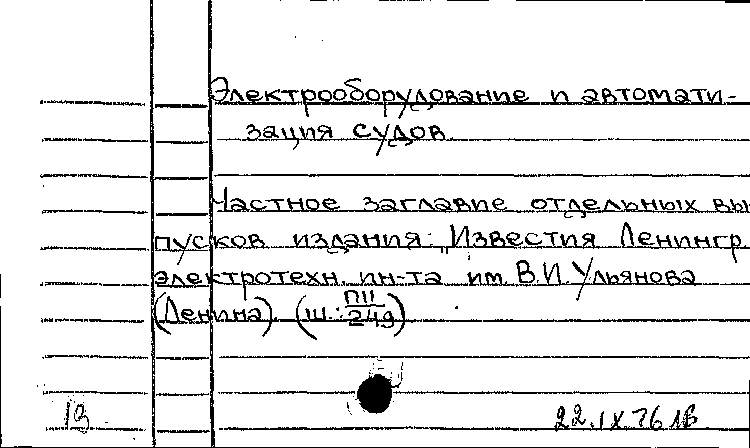 Электрооборудование и автомати-
зация судов.
Частное заглавие отдельных вы
пусков издания: „Известия Ленингр.
электротехн. ин-та им. В.И. Ульянова
(Ленина). (ш.: ПII/249)
13
22.IX.76